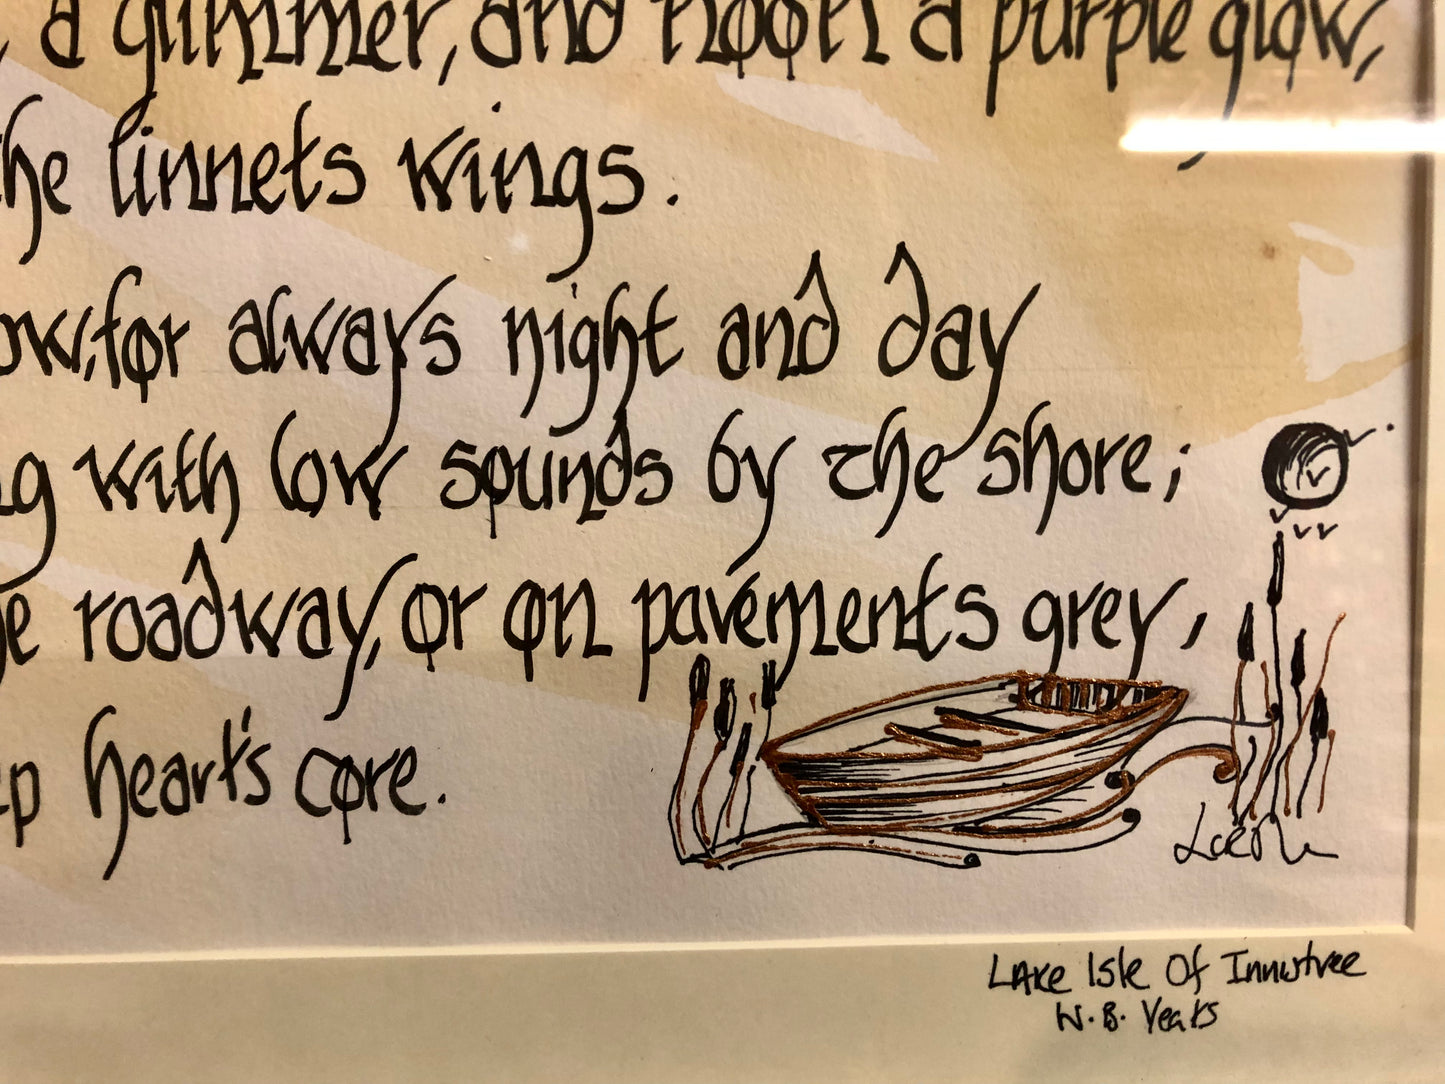 a glimmer, and noon a purple glow,
the linnets wings.
now, for always night and day
with low sounds by the shore;
roadway, or on pavements grey,
heart's core.
Lake Isle Of Innistree
W. B. Yeats